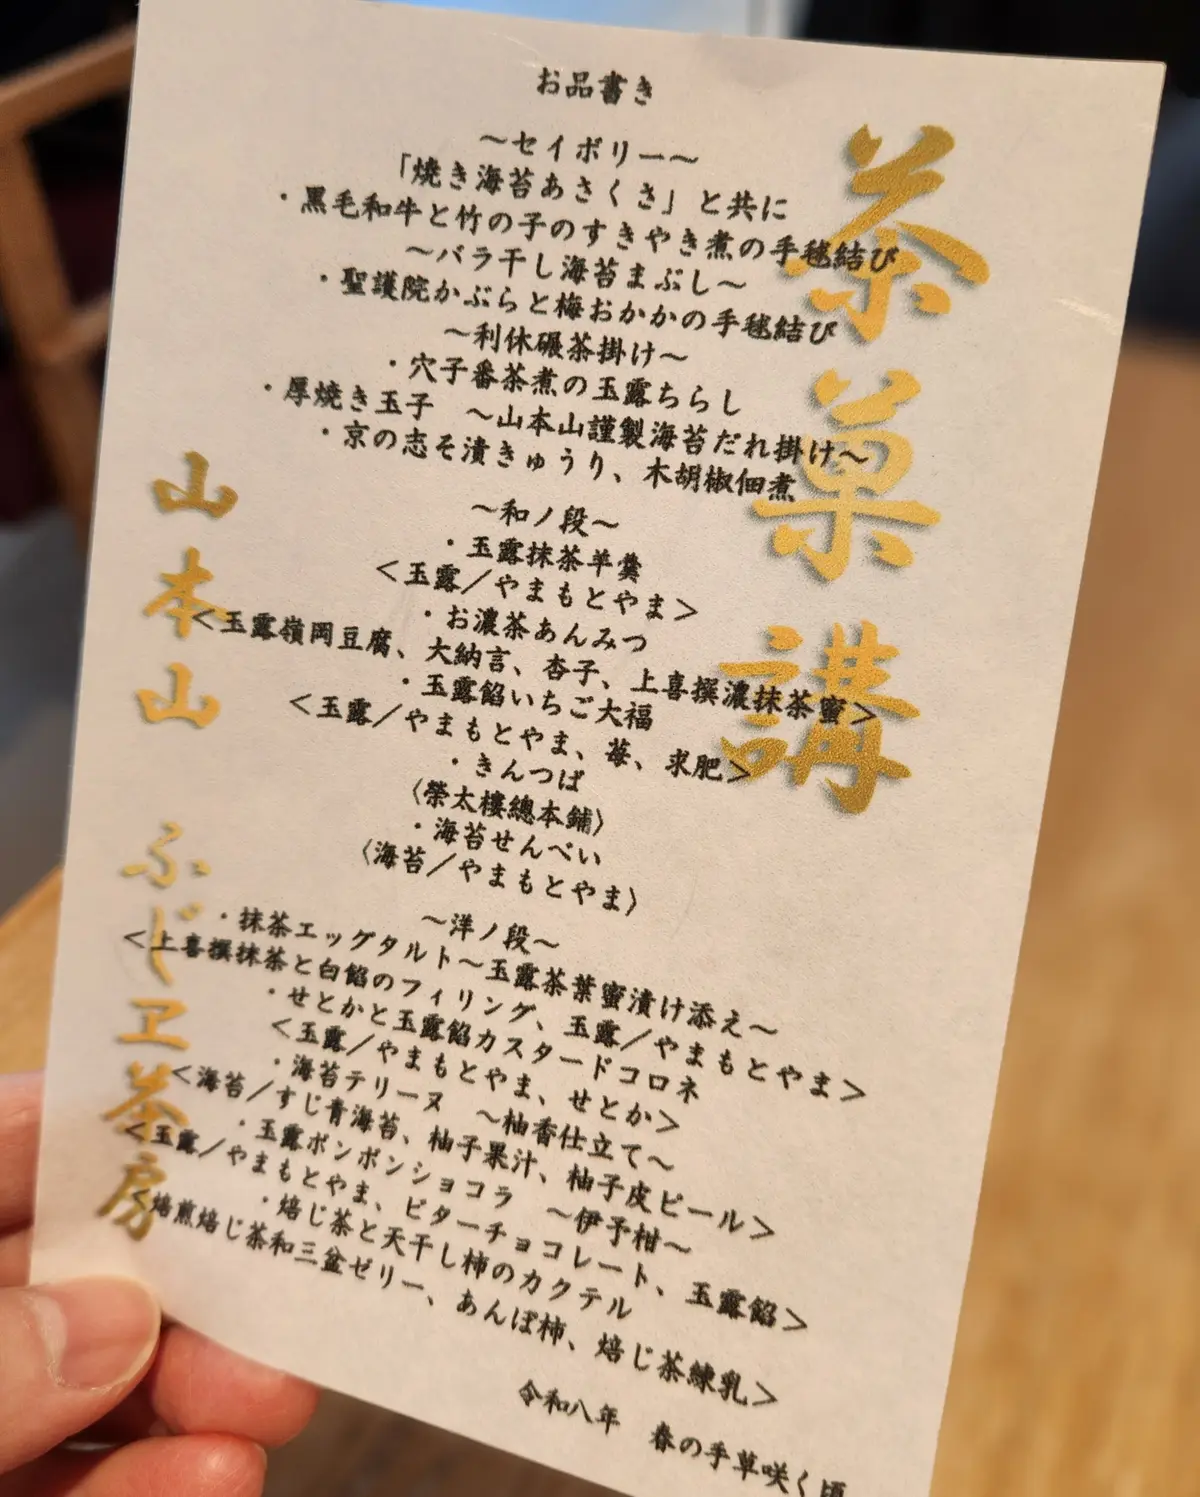 茶菓講
お品書き
～セイボリー～
「焼き海苔あさくさ」と共に
・黒毛和牛と竹の子のすきやき煮の手毬結び
～バラ干し海苔まぶし～
・聖護院かぶらと梅おかかの手毬結び
～利休碾茶掛け～
・穴子番茶煮の玉露ちらし
・厚焼き玉子　～山本山謹製海苔だれ掛け～
・京の志そ漬きゅうり、木胡椒佃煮
～和ノ段～
・玉露抹茶羊羹
＜玉露／やまもとやま＞
・お濃茶あんみつ
＜玉露嶺岡豆腐、大納言、杏子、上喜撰濃抹茶蜜＞
・玉露餡いちご大福
＜玉露／やまもとやま、苺、求肥＞
・きんつば
〈榮太樓總本鋪〉
・海苔せんべい
〈海苔／やまもとやま〉
～洋ノ段～
・抹茶エッグタルト～玉露茶葉蜜漬け添え～
＜上喜撰抹茶と白餡のフィリング、玉露／やまもとやま＞
・せとかと玉露餡カスタードコロネ
＜玉露／やまもとやま、せとか＞
・海苔テリーヌ　～柚香仕立て～
＜海苔／すじ青海苔、柚子果汁、柚子皮ピール＞
・玉露ボンボンショコラ　～伊予柑～
＜玉露／やまもとやま、ビターチョコレート、玉露餡＞
・焙じ茶と天干し柿のカクテル
焙煎焙じ茶和三盆ゼリー、あんぽ柿、焙じ茶練乳＞
令和八年　春の手草咲く頃
山本山　ふじヱ茶房